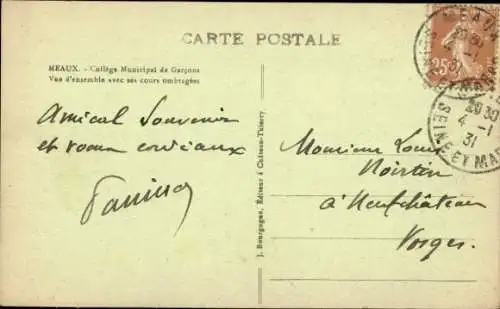 CARTE POSTALE
MEAUX. — Collège Municipal de Garçons
Vue d'ensemble avec ses cours ombragées
Amical Souvenir
et vœux cordiaux
J. Bourgogne, Éditeur à Château-Thierry
Monsieur Louis
Noirtin
à Neufchâteau
Vosges.
MEAUX
20 30
4 -1
31
SEINE ET MARNE
25
20 30
4 -1
31
SEINE ET MAR